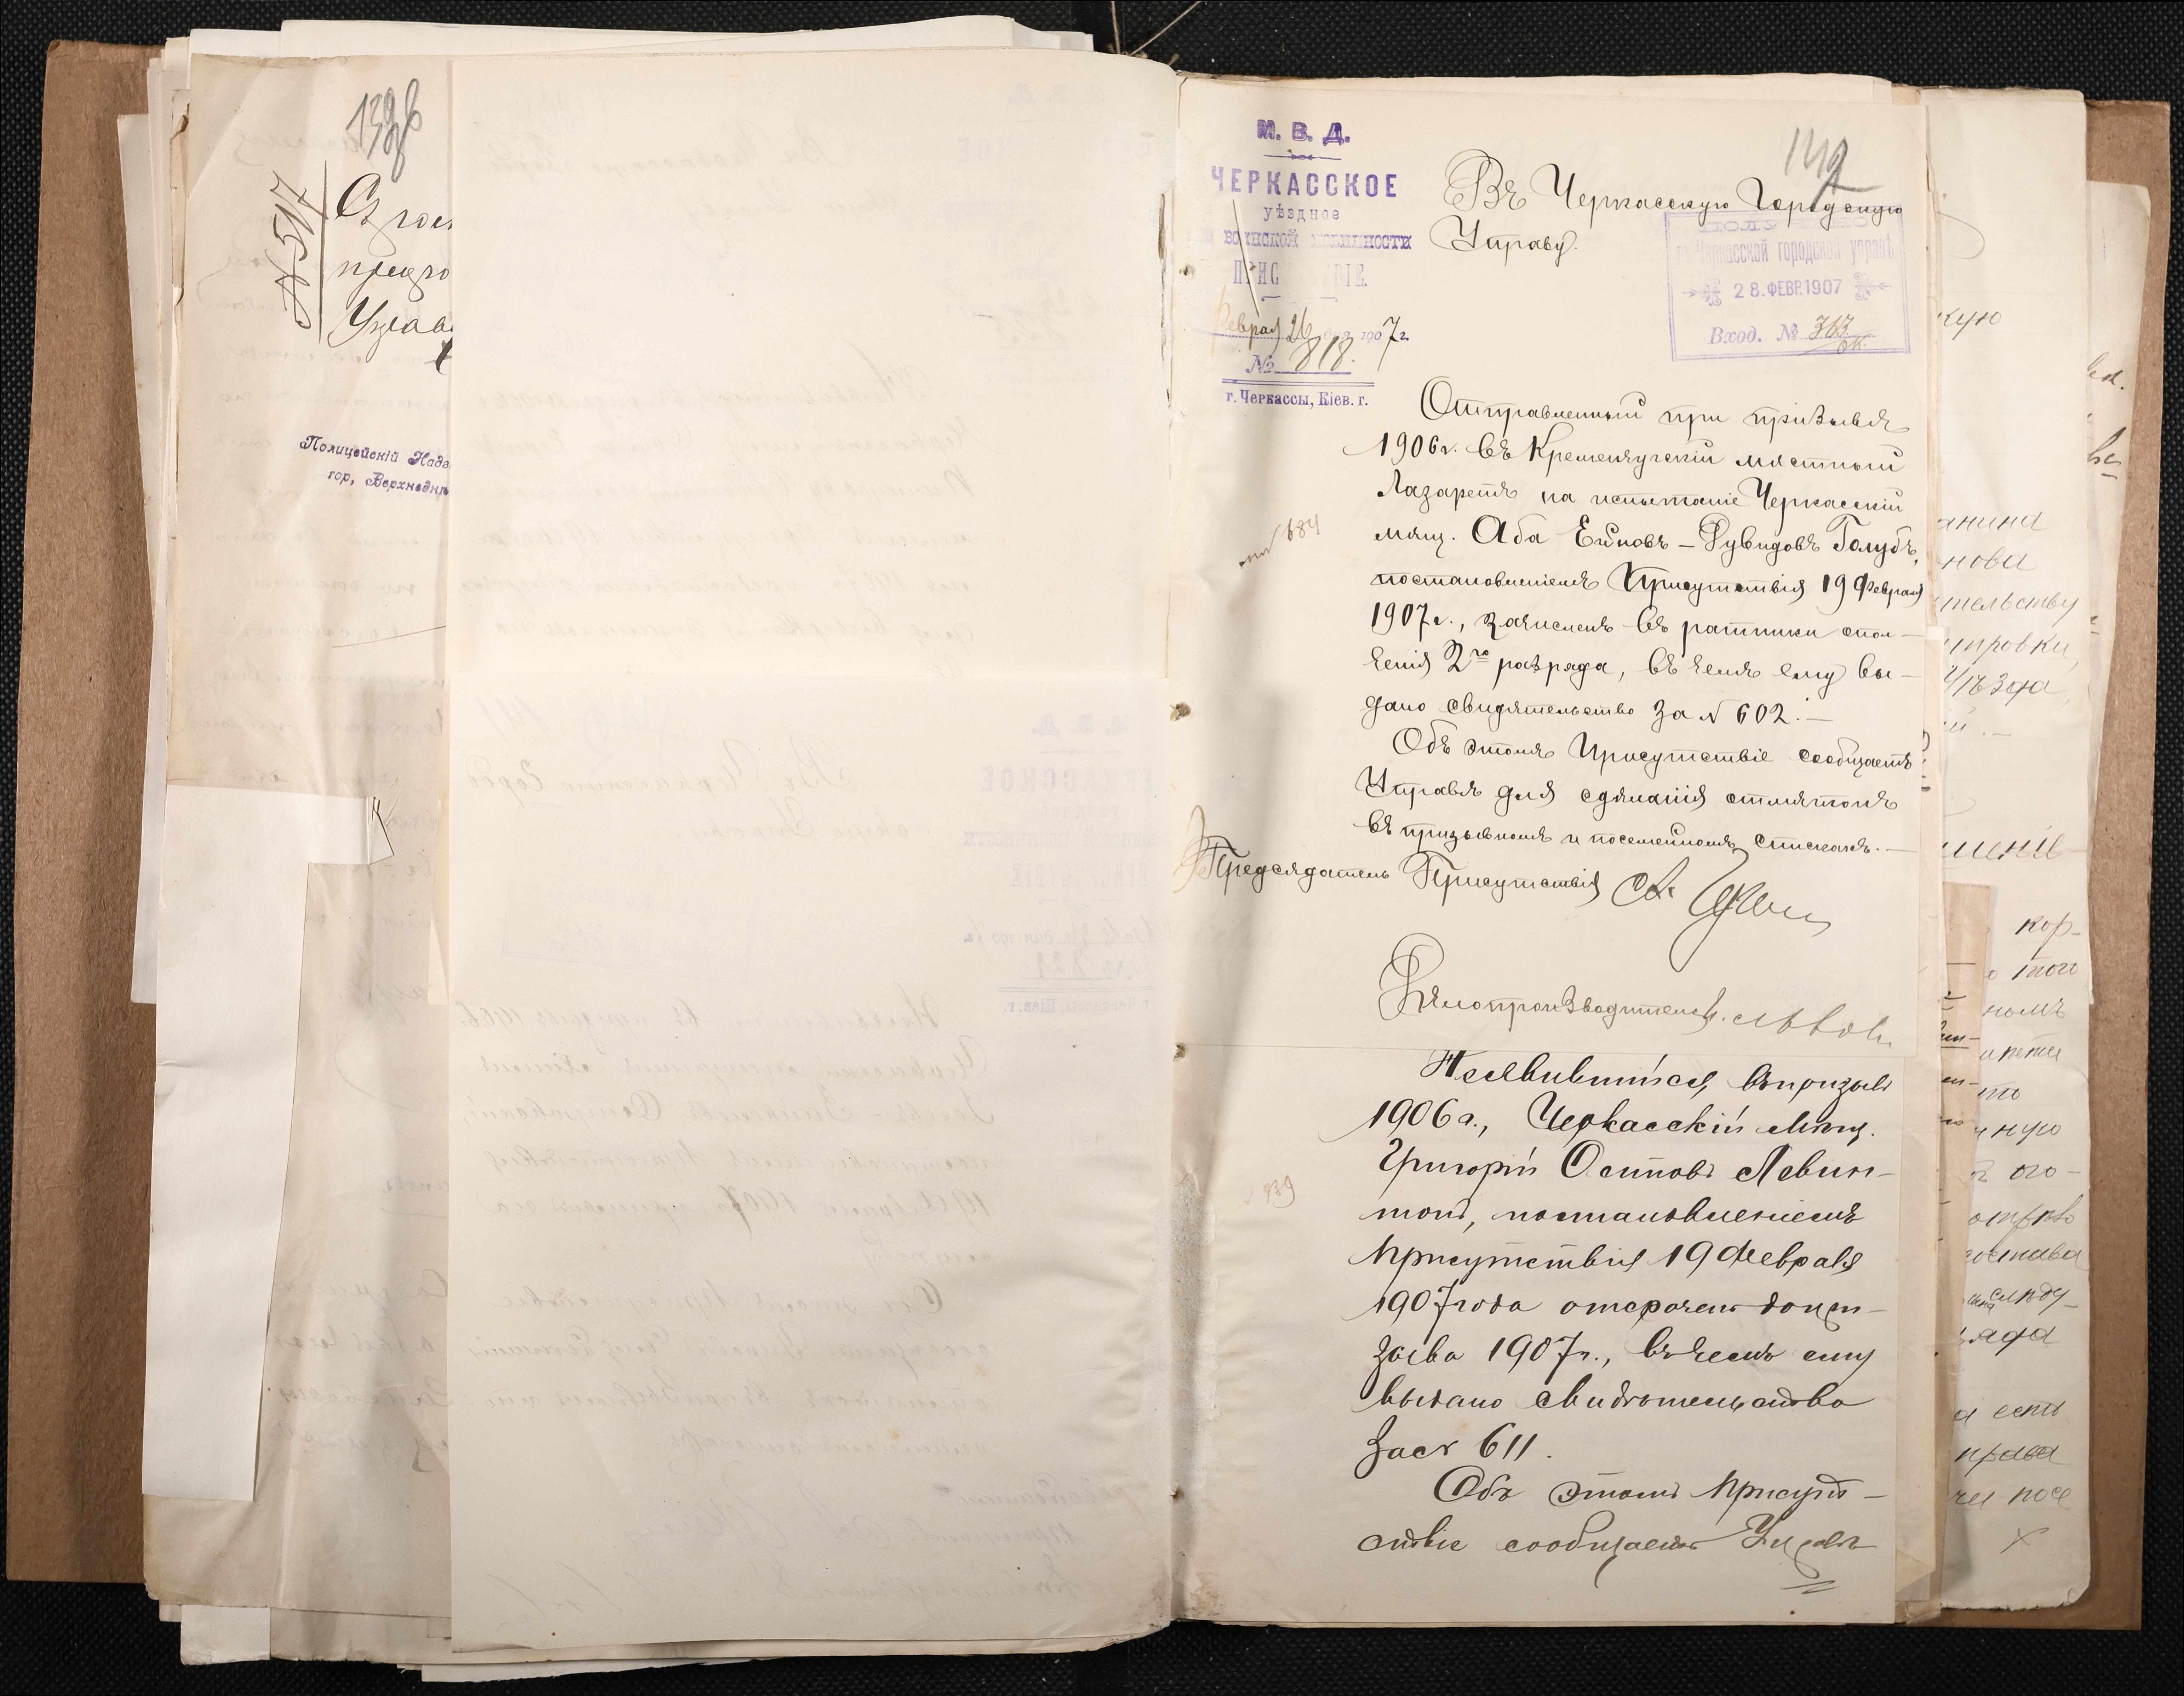 139б
№ 517
Полицейскій Надз
гор. Верхнедн
142
М. В. Д.
ЧЕРКАССКОЕ
уѣздное
воинской повинности
ПРИСУТСТВІЕ
Феврал 26 дня 1907 г.
№ 818.
г. Черкассы, Кіев. г.
Въ Черкасскую Городскую
Управу.
ПОЛУЧЕНО
въ Черкасской городской управѣ
28. ФЕВР. 1907
Вход. № 363
Отправленный при призывѣ
1906 г. въ Кременчугскій мѣстный
Лазаретъ на испытаніе Черкасскій
мѣщ. Аба Еиновъ-Рувидовъ Голубъ,
постановленіемъ Присутствія 19 февраля
1907 г., зачисленъ въ ратники опол-
ченія 2го разряда, въ чемъ ему вы-
дано свидѣтельство за № 602.
Объ этомъ Присутствіе сообщаетъ
Управѣ для сдѣланія отмѣтокъ
въ призывномъ и посемейномъ спискахъ.
Предсѣдатель Присутствія
Дѣлопроизводитель
684
Неявившійся въ призывъ
1906 г., Черкасскій мѣщ.
Григорій Осиповъ Левин-
тонъ, постановленіемъ
Присутствія 19 Февраля
1907 года отсроченъ до при-
зыва 1907 г., въ чемъ ему
выдано свидѣтельство
за № 611.
Объ этомъ Присутст-
ствіе сообщаетъ Управѣ
939
кую
анина
нова
тельству
ировки,
уѣзда
кор-
того
номъ
что
ную
ого-
состава
слѣду-
ряда
есть
права
посе